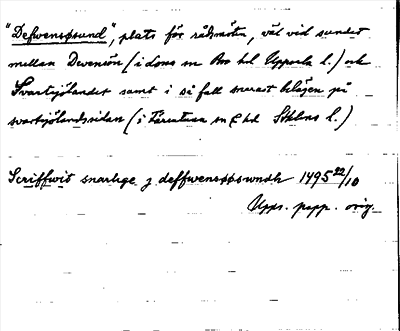 "Defwensøsund", plats för rådmöten, väl vid sundet
mellan Dävensön (i Låssa sn Bro hd Uppsala l.) och
Svartsjölandet samt i så fall snarast belägen på
svartsjölandssidan (i Färentuna sn o hd Sthlms l.)
Scriffwit snarlige j deffwensøswndh 1495 22/10
Upps. papp. orig.